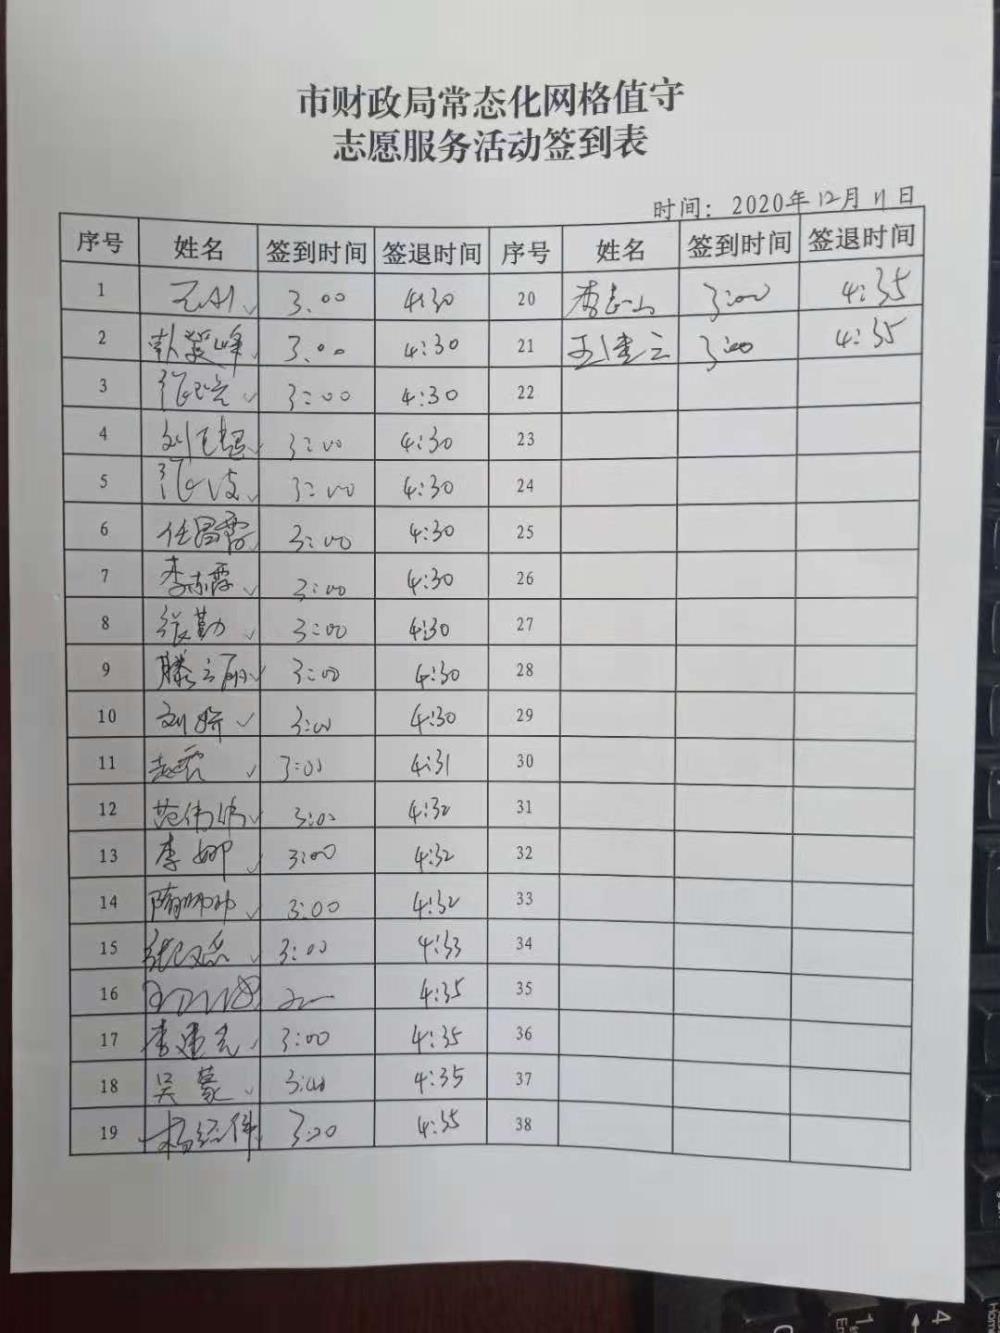 市财政局常态化网格值守
志愿服务活动签到表
时间：2020年12月11日
序号 姓名 签到时间 签退时间 序号 姓名 签到时间 签退时间
1 3:00 4:30 20 李志山 3:00 4:35
2 3:00 4:30 21 4:35
3 3:00 4:30 22
4 3:00 4:30 23
5 张波 3:00 4:30 24
6 任昌霞 3:00 4:30 25
7 李赤霞 3:00 4:30 26
8 张勤 3:00 4:30 27
9 滕立丽 3:00 4:30 28
10 刘娇 3:00 4:30 29
11 赵霞 3:00 4:31 30
12 范伟娟 3:00 4:32 31
13 李娜 3:00 4:32 32
14 隋帅帅 3:00 4:32 33
15 3:00 4:33 34
16 4:35 35
17 李建光 3:00 4:35 36
18 吴蒙 3:00 4:35 37
19 3:00 4:35 38